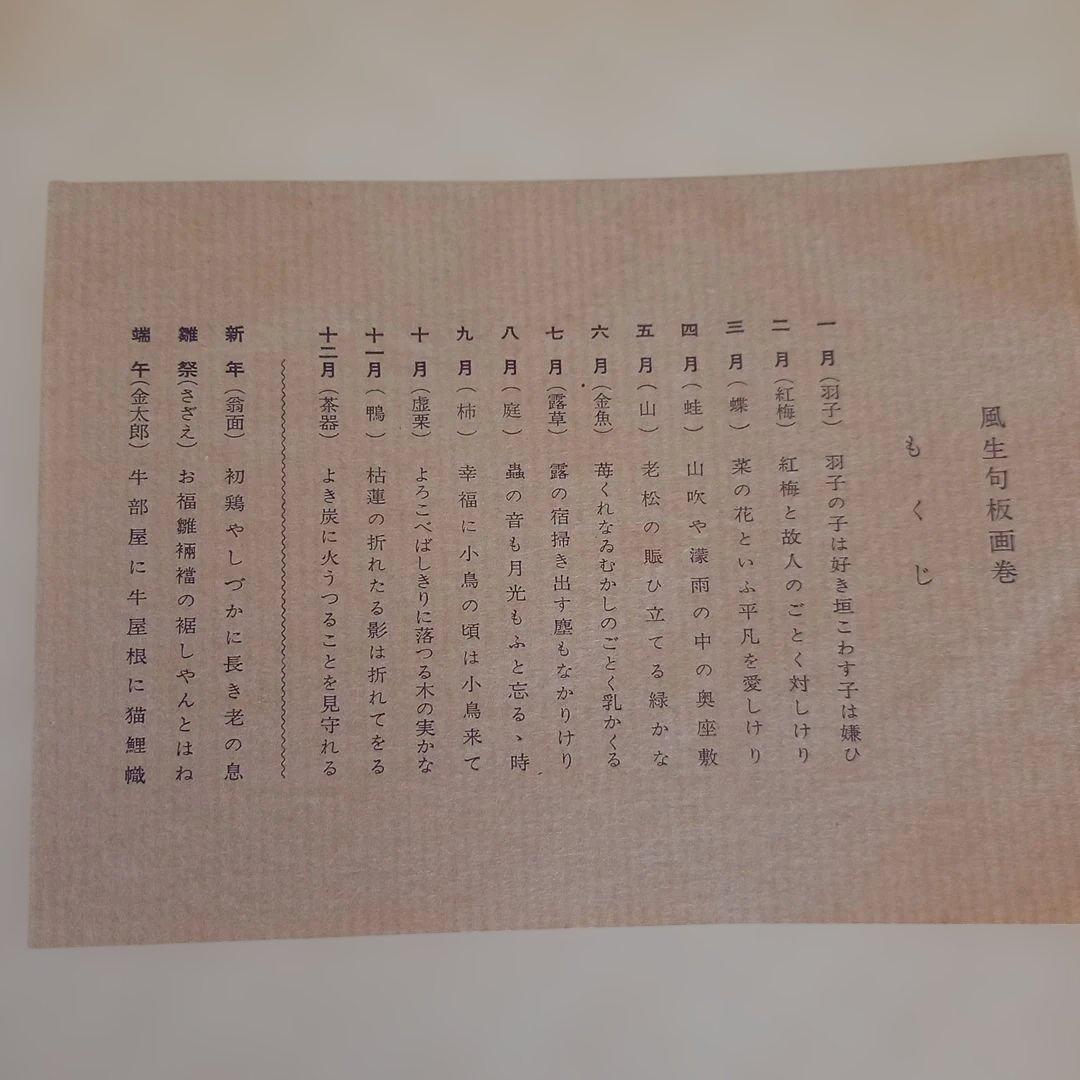 風生句板画巻
もくじ
一月（羽子）　羽子の子は好き垣こわす子は嫌ひ
二月（紅梅）　紅梅と故人のごとく対しけり
三月（蝶）　菜の花といふ平凡を愛しけり
四月（蛙）　山吹や濛雨の中の奥座敷
五月（山）　老松の賑ひ立てる緑かな
六月（金魚）　苺くれなゐむかしのごとく乳かくる
七月（露草）　露の宿掃き出す塵もなかりけり
八月（庭）　蟲の音も月光もふと忘るゝ時
九月（柿）　幸福に小鳥の頃は小鳥来て
十月（虚栗）　よろこべばしきりに落つる木の実かな
十一月（鴨）　枯蓮の折れたる影は折れてをる
十二月（茶器）　よき炭に火うつることを見守れる
新年（翁面）　初鶏やしづかに長き老の息
雛祭（さざえ）　お福雛裲襠の裾しやんとはね
端午（金太郎）　牛部屋に牛屋根に猫鯉幟